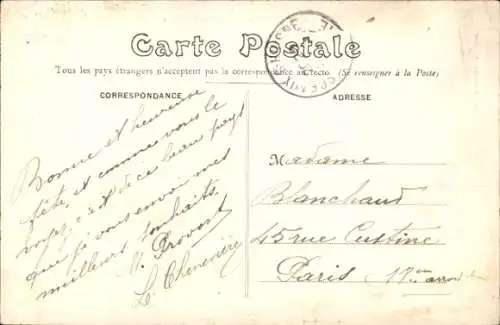 Carte Postale
Tous les pays étrangers n'acceptent pas la correspondance au recto (Se renseigner à la Poste)
CORRESPONDANCE
ADRESSE
Bonne et heureuse
fête, et comme vous le
voyez c'est de ce beau pays
que je vous envoi mes
meilleurs souhaits.
Provost
L. Chenevière
Madame
Blanchaud
45 rue Custine
Paris 17